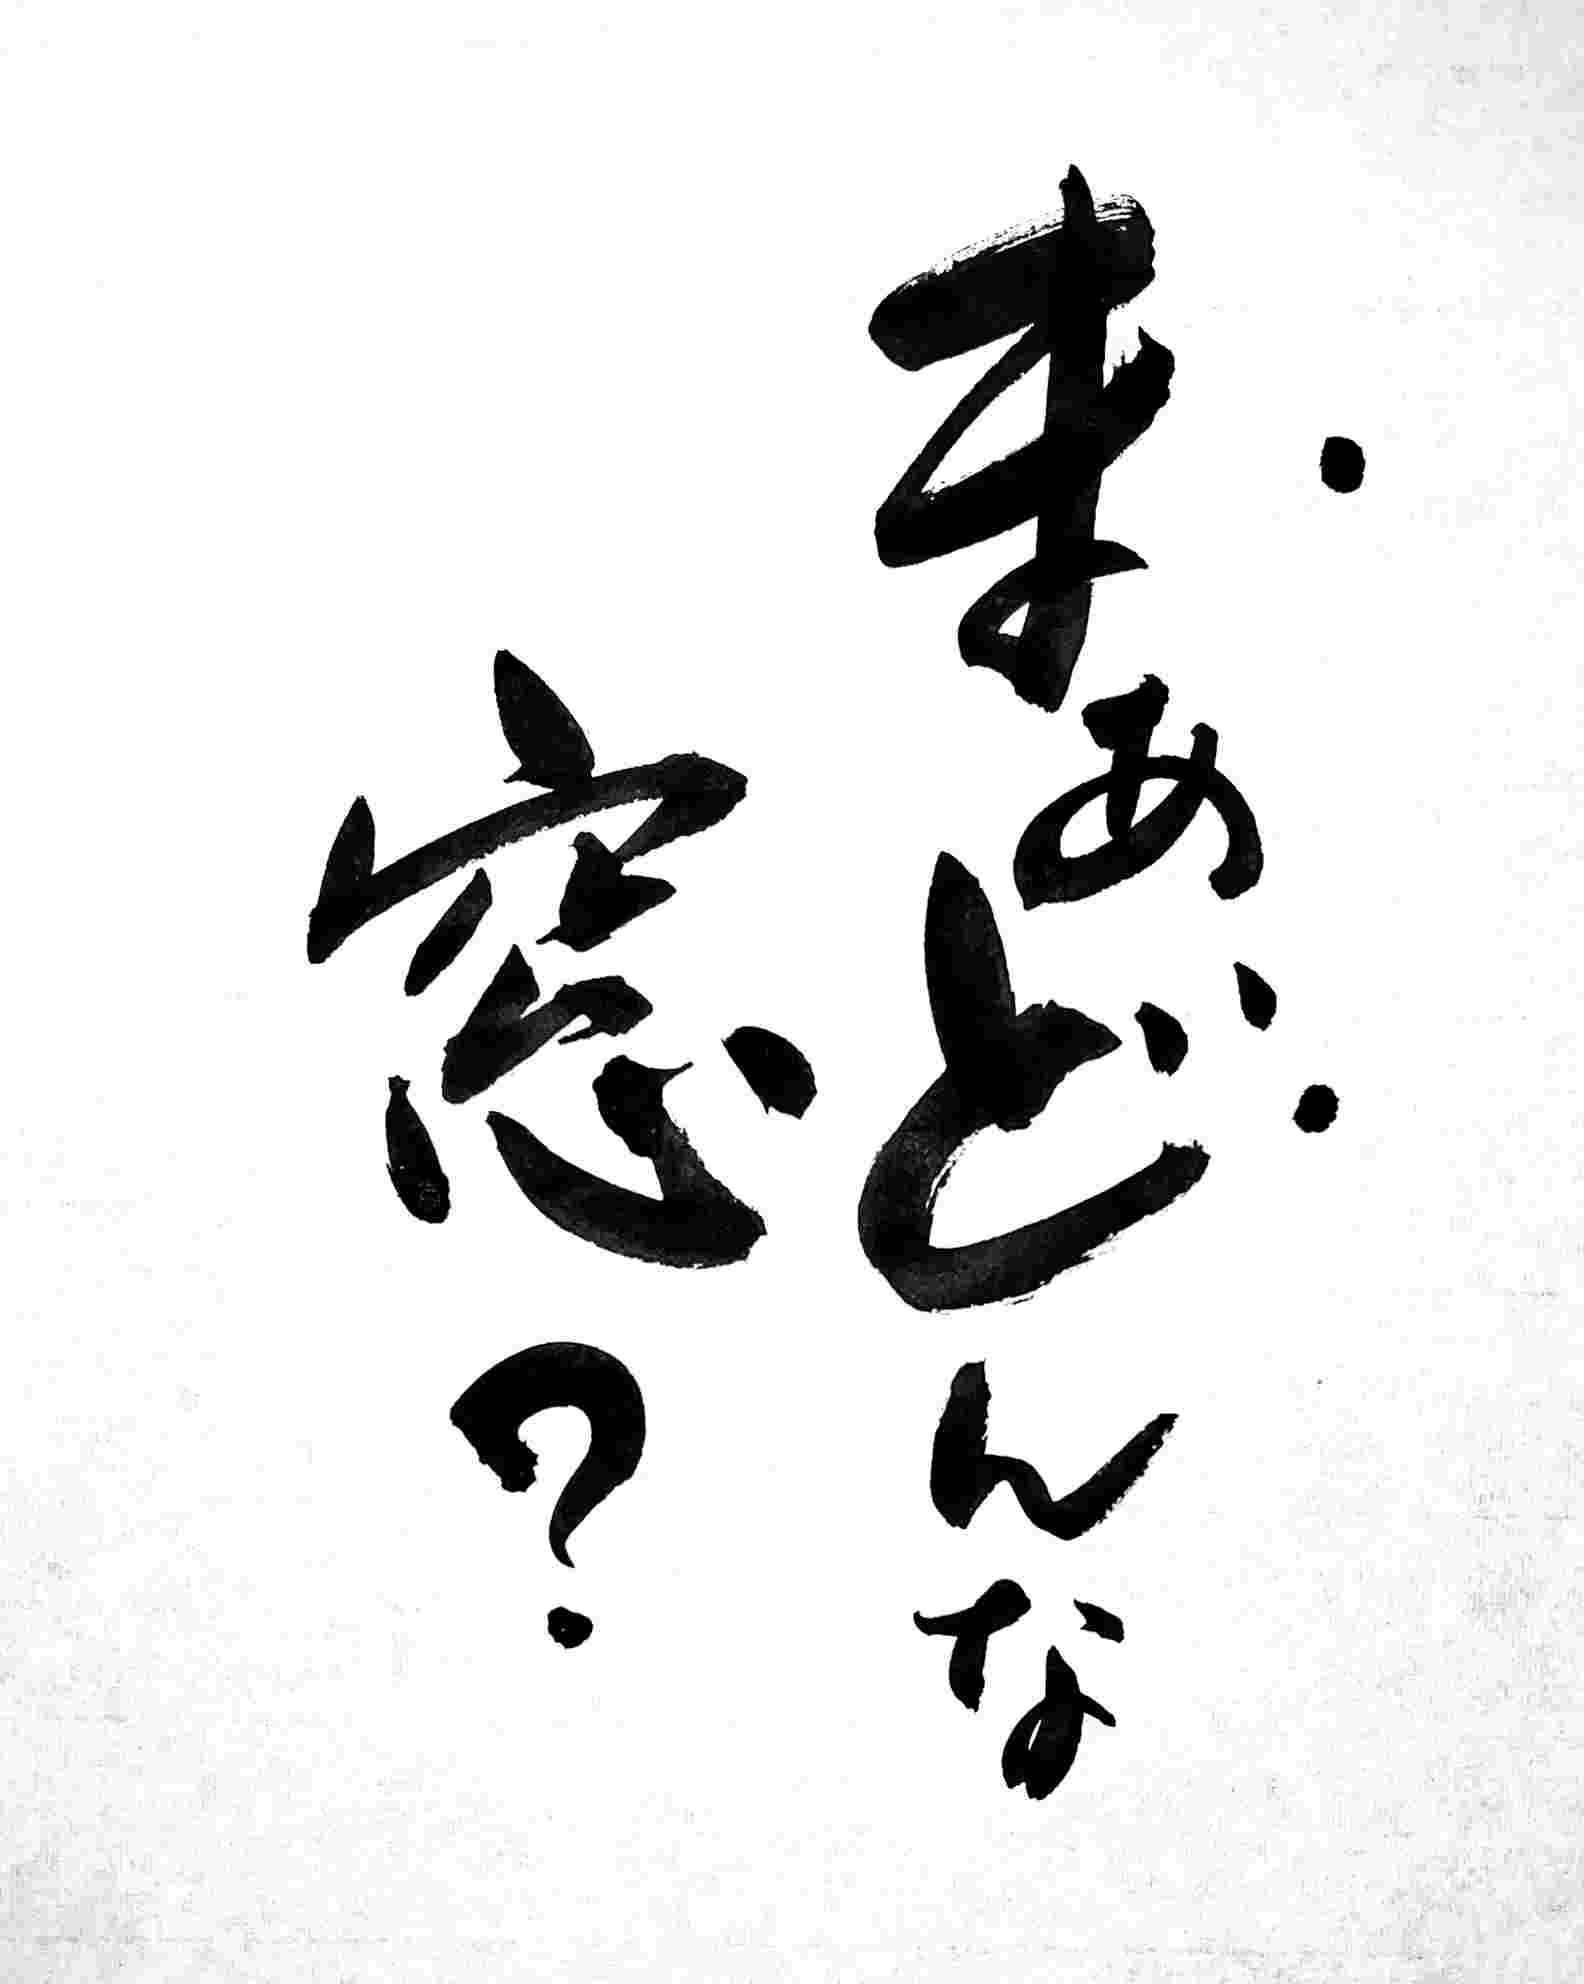 まあどんな
窓?